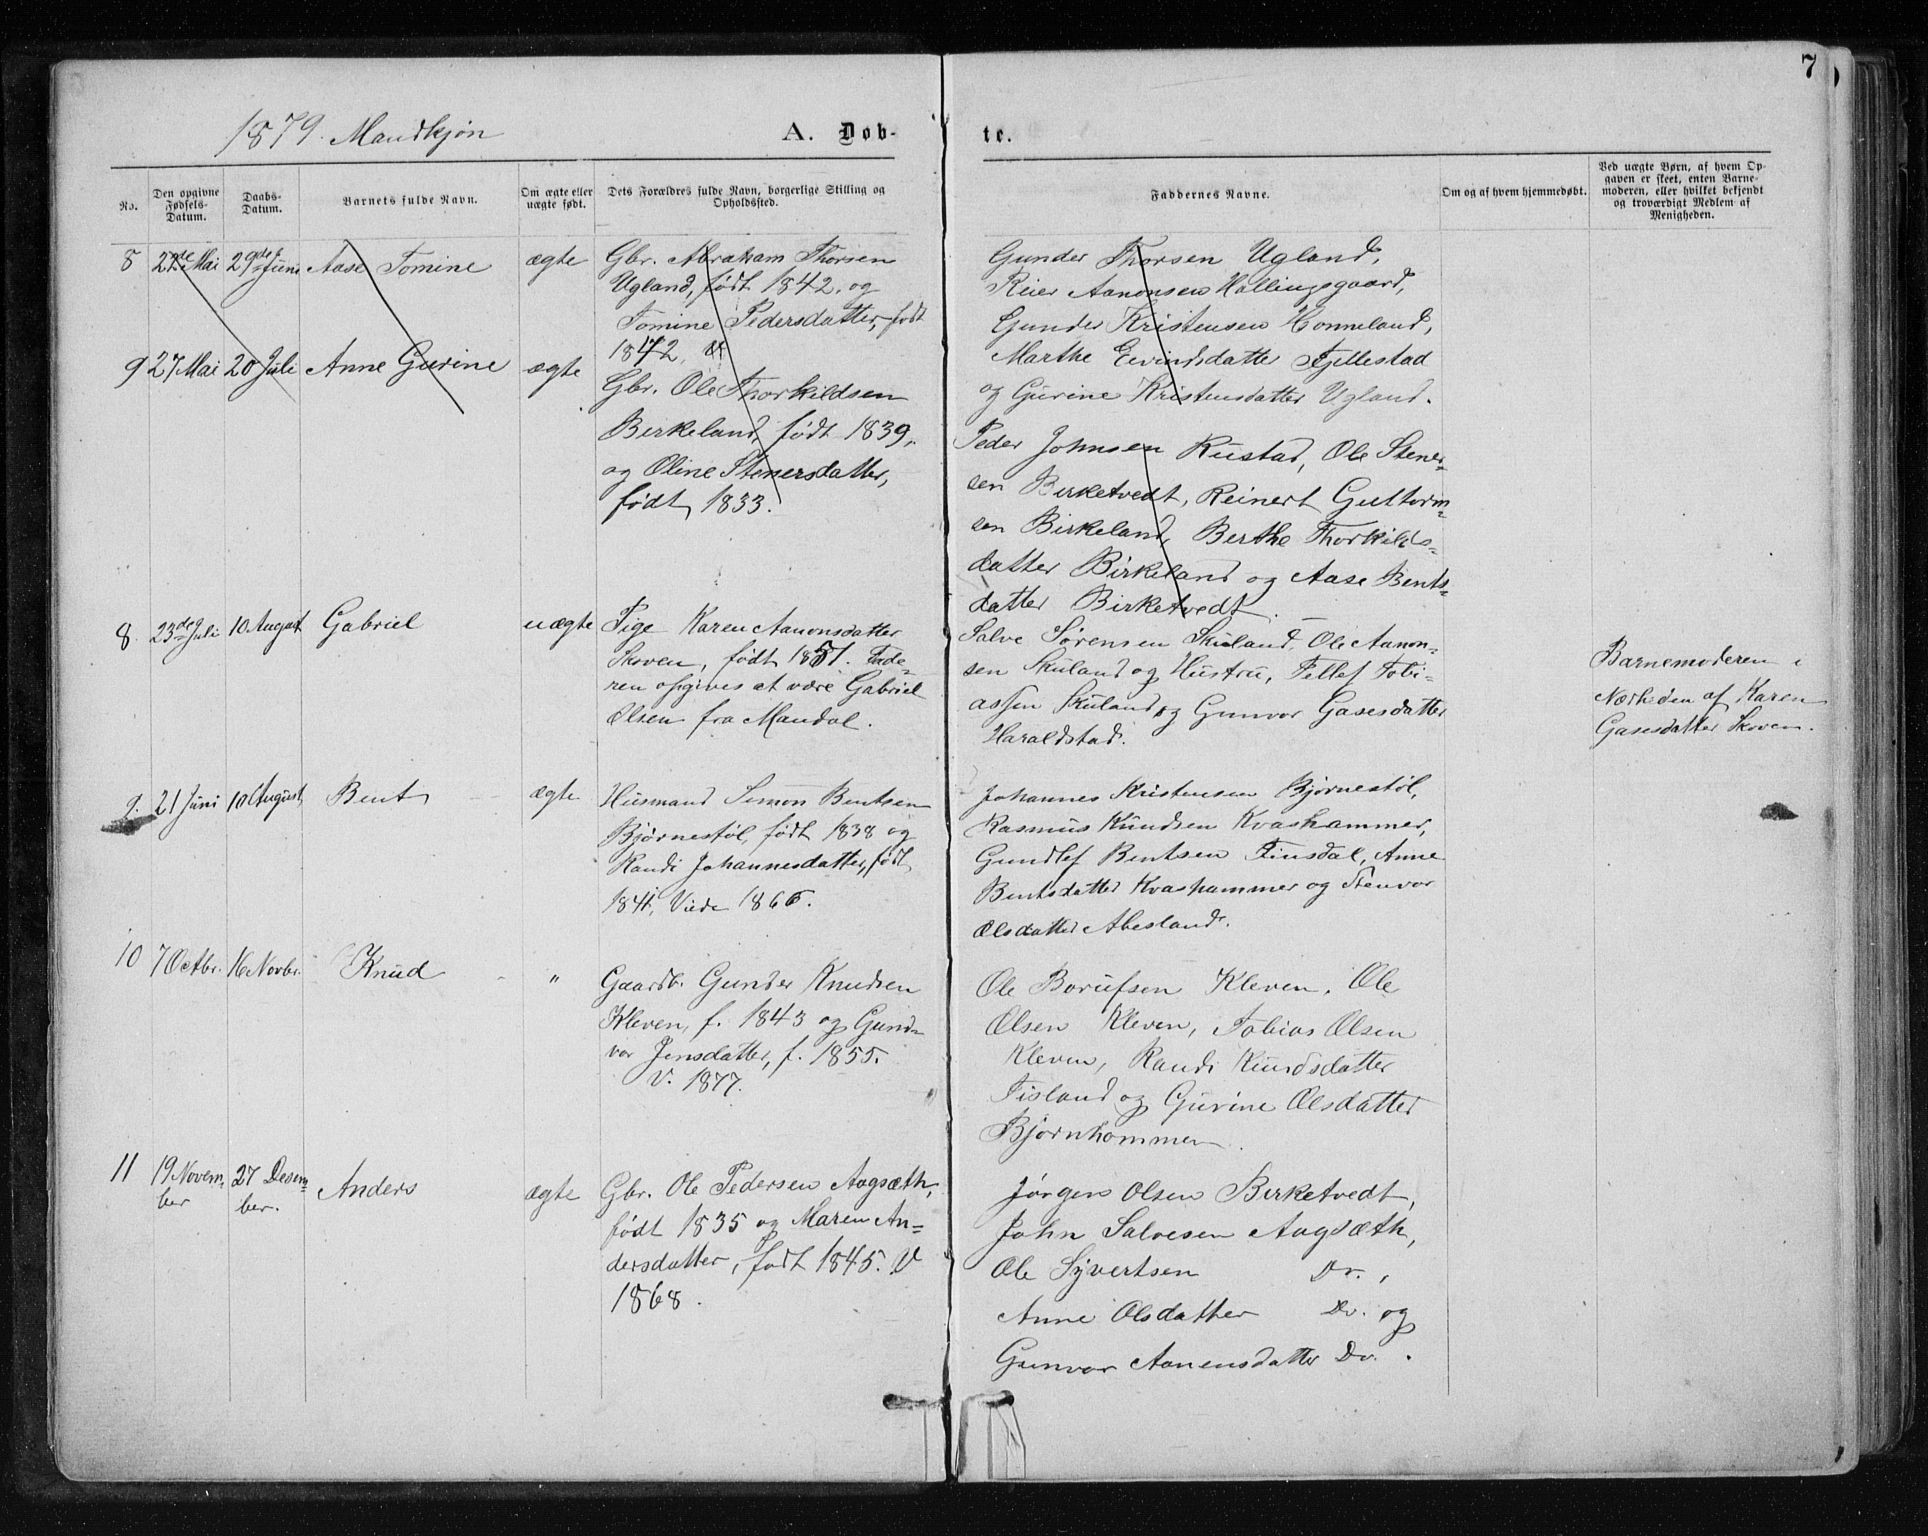 7
1879. Mandkjøn A. Døb- te.
No.
Den opgivne Fødsels-Datum.
Daabs-Datum.
Barnets fulde Navn.
Om ægte eller uægte født.
Dets Forældres fulde Navn, borgerlige Stilling og Opholdssted.
Faddernes Navne.
Om og af hvem hjemmedøbt.
Ved uægte Børn, af hvem Op-
gaven er skeet, enten Barne-
moderen, eller hvilket bekjendt
og troværdigt Medlem af
Menigheden.
8 Mai 29de Juni Aase Tomine ægte
Gbr. Abraham Thorsen
Ugland, født 1842, og
Tomine Pedersdatter, født
1842,
Gunder Thorsen Ugland,
Reier Aanonsen Hallingsgaard,
Gunder Kristensen Honneland,
Marthe Eivindsdatter Fjellestad
og Gurine Kristensdatter Ugland.
9 27 Mai 20 Juli Anne Gurine ægte
Gbr. Ole Thorkildsen
Birkeland, født 1839,
og Oline Stenersdatter,
født 1833.
Peder Johnsen Rustad, Ole Stener-
sen Birketvedt, Reinert Guttorm-
sen Birkeland, Berthe Thorkilds-
datter Birkeland og Aase Bents-
datter Birketvedt.
8. 23de Juli 10 August Gabriel uægte
Pige Karen Aanonsdatter
Skoven, født 1851. Fade-
ren opgives at være Gabriel
Olsen fra Mandal.
Salve Sørensen Skuland, Ole Aanon-
sen Skuland og Hustru, Tellef Tobi-
assen Skuland og Gunvor Gasesdatter
Haraldstad.
Barnemoderen i
Nærheden af Karen
Gasesdatter Skoven.
9. 21 Juni 10 August Bent ægte
Husmand Simon Bentsen
Bjørnestøl, født 1838 og
Randi Johannesdatter, født
1841, Viede 1866.
Johannes Kristensen Bjørnestøl,
Rasmus Knudsen Kvashammer,
Gundlef Bentsen Finsdal, Anne
Bentsdatter Kvashammer og Stenvor
Olsdatter Abesland.
10 7 Octbr. 16 Novbr. Knud "
Gaardb. Gunder Knudsen
Kleven, f. 1843 og Gund-
vor Jensdatter, f. 1855.
V. 1877.
Ole Borufsen Kleven, Ole
Olsen Kleven, Tobias Olsen
Kleven, Randi Knudsdatter
Fisland og Gurine Olsdatter
Bjørnhommen.
11 19 Novem-
ber 27 Desem-
ber. Anders ægte
Gbr. Ole Pedersen Aagsæth,
født 1835 og Maren An-
dersdatter, født 1845. V
1868.
Jørgen Olsen Birketvedt,
John Salvesen Aagsæth,
Ole Syvertsen Do.,
Anne Olsdatter Do. og
Gunvor Aanensdatter Do.